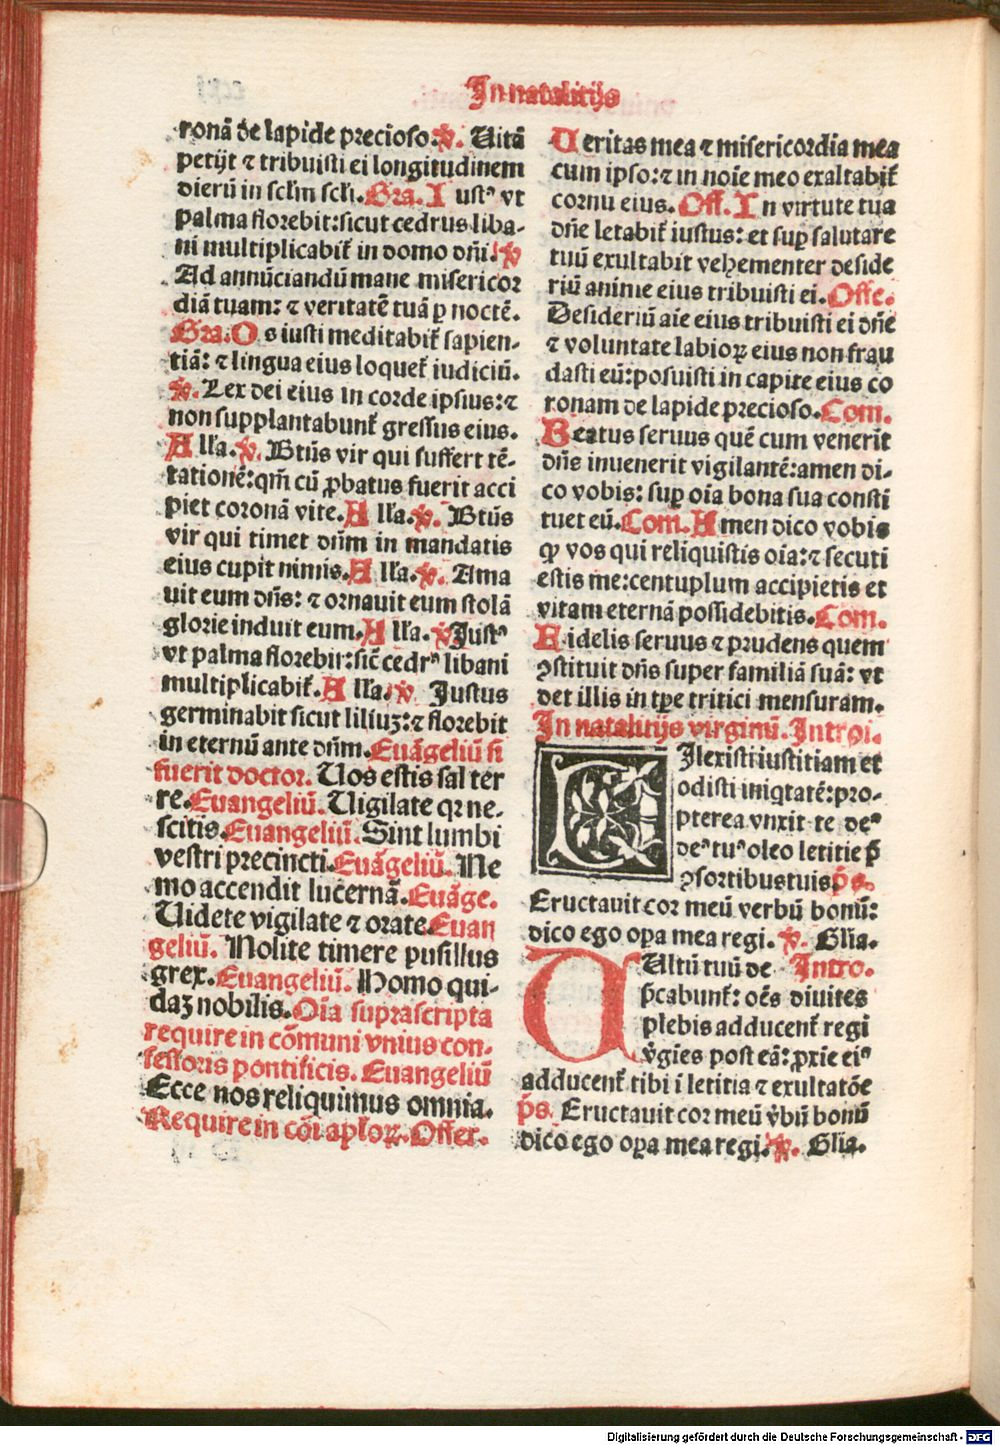 In natalitijs
ronā de lapide precioso. ℣. Uitā
petijt ⁊ tribuisti ei longitudinem
dierū in sclm scli. Gra. Iustꝰ vt
palma florebit: sicut cedrus liba-
ni multiplicabit̃ in domo dñi. ℣
Ad annūciandū mane misericor
diā tuam: ⁊ veritatē tuā ꝑ noctē.
Gra. Os iusti meditabit̃ sapien-
tiā: ⁊ lingua eius loquet̃ iudiciū.
℣. Lex dei eius in corde ipsius: ⁊
non supplantabunt̃ gressus eius.
Alla. ℣. Btūs vir qui suffert tē-
tationē: qm̄ cū ꝓbatus fuerit acci
piet coronā vite. Alla. ℣. Btūs
vir qui timet dūm in mandatis
eius cupit nimis. Alla. ℣. Ama
uit eum dñs: ⁊ ornauit eum stolā
glorie induit eum. Alla. ℣ Justꝰ
vt palma florebit: sic̄ cedrꝰ libani
multiplicabit̃. Alla. ℣. Justus
germinabit sicut liliuꝫ: ⁊ florebit
in eternū ante dūm. Euāgeliū si
fuerit doctor. Uos estis sal ter
re. Euangeliū. Uigilate qꝛ ne-
scitis. Euangeliū. Sint lumbi
vestri precincti. Euāgeliū. Ne
mo accendit lucernā. Euāge.
Uidete vigilate ⁊ orate. Euan
geliū. Nolite timere pusillus
grex. Euangeliū. Homo qui-
daꝫ nobilis. Oīa suprascripta
require in cōmuni vnius con-
fessoris pontificis. Euangeliū
Ecce nos reliquimus omnia.
Require in cōi apl̄oꝝ. Offer.
Ueritas mea ⁊ misericordia mea
cum ipso: ⁊ in noīe meo exaltabit̃
cornu eius. Off. In virtute tua
dñe letabit̃ iustus: et suꝑ salutare
tuū exultabit vehementer deside
riū anime eius tribuisti ei. Offe.
Desideriū aīe eius tribuisti ei dñe
⁊ voluntate labioꝝ eius non frau
dasti eū: posuisti in capite eius co
ronam de lapide precioso. Com.
Beatus seruus quē cum venerit
dñs inuenerit vigilantē: amen di-
co vobis: suꝑ oīa bona sua consti
tuet eū. Com. Amen dico vobis
ꝙ vos qui reliquistis oīa: ⁊ secuti
estis me: centuplum accipietis et
vitam eternā possidebitis. Com.
Fidelis seruus ⁊ prudens quem
ꝯstituit dñs super familiā suā: vt
det illis in tp̄e tritici mensuram.
In natalitijs virginū. Introi.
DIlexisti iustitiam et
odisti iniqtatē: pro-
pterea vnxit te deꝰ
deꝰ tuꝰ oleo letitie p̄
ꝯsortibus tuis p̄s.
Eructauit cor meū verbū bonū:
dico ego oꝑa mea regi. ℣. Glia.
UUltū tuū de Intro.
p̄cabunt̃: oēs diuites
plebis adducent̃ regi
v̄gies post eā: ꝓxie eiꝰ
adducent̃ tibi ī letitia ⁊ exultatōe
p̄s. Eructauit cor meū v̄bū bonū
dico ego oꝑa mea regi. ℣. Glia.
Digitalisierung gefördert durch die Deutsche Forschungsgemeinschaft - DFG